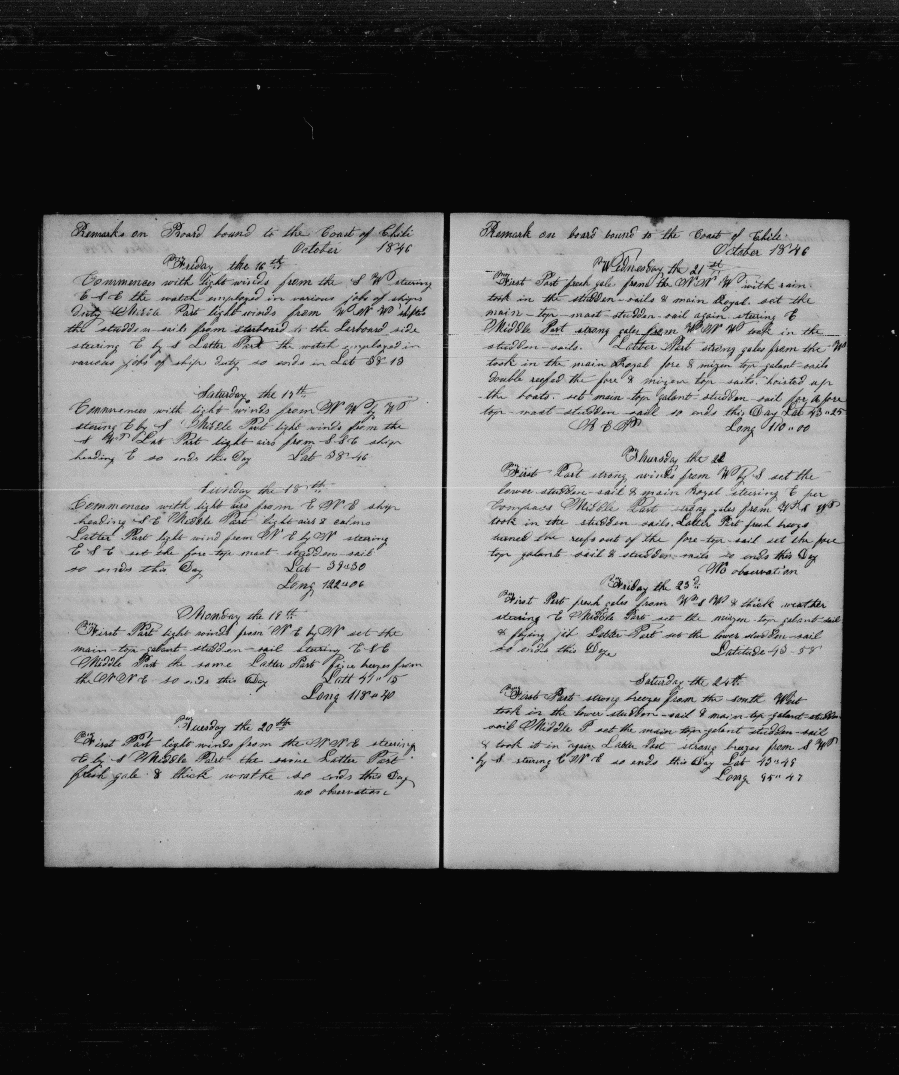 Remarks on Board bound to the Coast of Chili
October 1846
Friday the 16th
Commences with light winds from the S W steering
E S E the watch employed in various jobs of ships
Duty Middle Part light winds from W N W shifted
the studden-sails from starboard to the Larboard side
steering E by S Latter Part the watch employed in
various jobs of ship duty so ends in Lat 38 13
Saturday the 17th
Commences with light winds from N W by W
steering E by S Middle Part light winds from the
S W Lat Part light airs from S S E ship
heading E so ends this Day Lat 38 46
Sunday the 18th
Commences with light airs from E N E ship
heading S E Middle Part light airs & calms
Latter Part light wind from N E by N steering
E S E set the fore top mast studden sail
so ends this Day Lat 39 30
Long 122 06
Monday the 19th
First Part light winds from N E by N set the
main-top-galant-studden-sail steering E S E
Middle Part the same Latter Part fine breezes from
the N N E so ends this Day Latt 41 15
Long 118 40
Tuesday the 20th
First Part light winds from the N N E steering
E by S Middle Part the same Latter Part
fresh gale & thick wrathe so ends this Day
no observation
Remark on board bound to the Coast of Chili
October 1846
Wednesday the 21st
First Part fresh gale from the N N W with rain
took in the studden-sails & main Royal set the
main-top-mast-studden-sail again steering E
Middle Part strong gales from W N W took in the
studden-sails. Latter Part strong gales from the W
took in the main Royal fore & mizen top-galant-sails
double reefed the fore & mizen top-sails hoisted up
the boats set main top galant studden sail for a fore
top-mast-studden sail so ends this Day Lat 43 25
Long 110 00
Thursday the 22
First Part strong winds from W by S set the
lower studden-sail & main Royal steering E per
Compass Middle Part strong gales from W S W
took in the studden sails Latter Part fresh breeze
turned the reefs out of the fore-top-sail set the fore
top galant sail & studden-sails so ends this Day
No observation
Friday the 23d
First Part fresh gales from W S W & thick weather
steering E Middle Part set the mizen top-galant-sail
& flying jib Latter Part set the lower studden-sail
so ends this Day Latitude 43 58
Saturday the 24th
First Part strong breezes from the south West
took in the lower studden-sail & main-top galant-studden
sail Middle P set the main top-galant studden-sail
& took it in again Latter Part strong breezes from S W
by S steering E N E so ends this Day Lat 43 48
Long 95 47